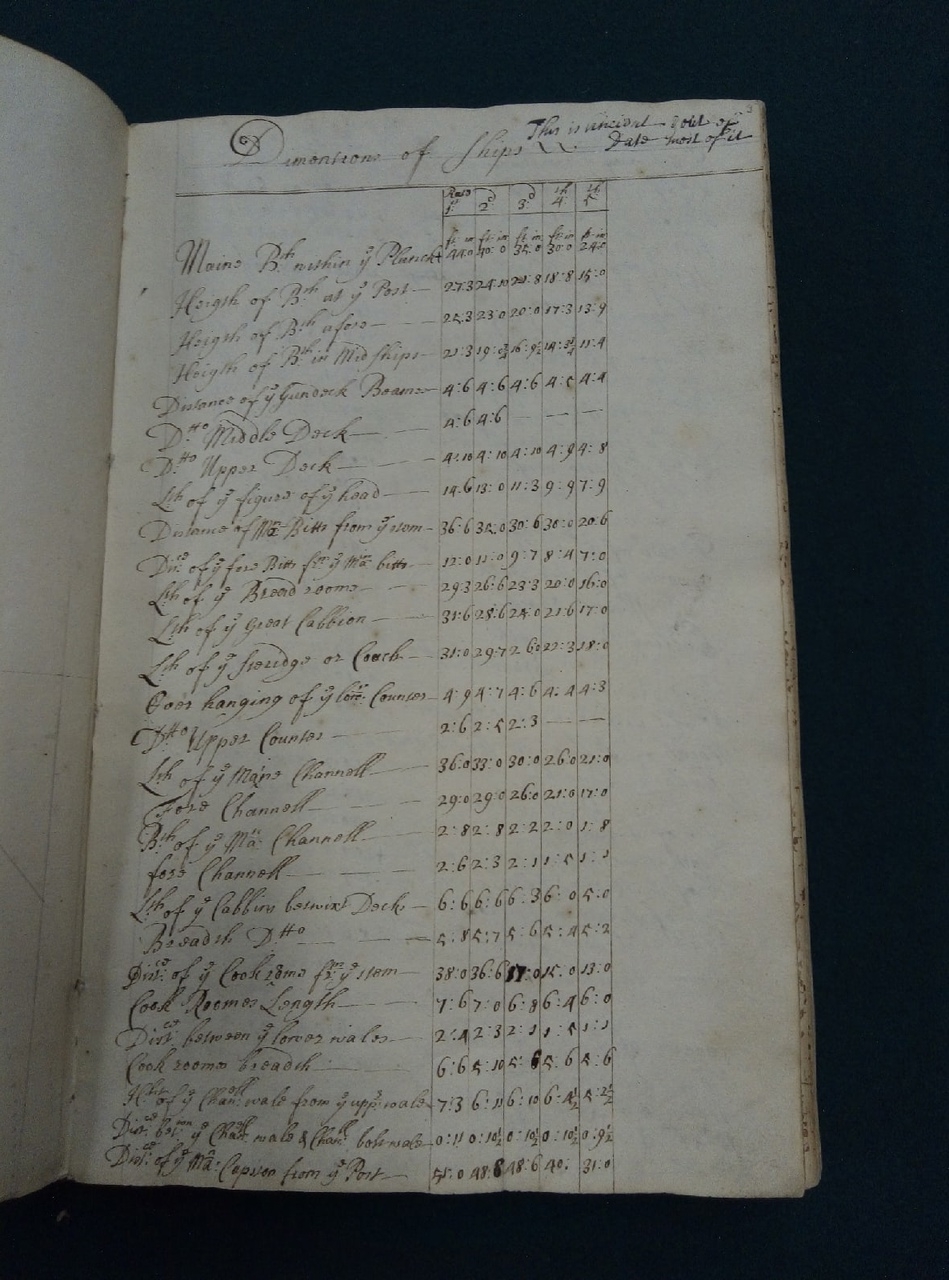 3
Dimentions of Ships This is ancient & out of
Date most of it
Rates
1st 2d 3d 4th 5th
ft in ft in ft in ft in ft in
Maine Bth within ye Planck 44:0 40:0 35:0 30:0 24:0
Heigth of Bth at ye Post 27:3 24:10 21:8 18:8 15:0
Heigth of Bth afore 25:3 23:0 20:0 17:3 13:9
Heigth of Bth in Mid Ships 21:3 11:4
Distance of ye Gundeck Beames 4:6 4:6 4:6 4:5 4:4
Dtto Middle Deck 4:6 4:6 — —
Dtto Upper Deck 4:10 4:10 4:10 4:9 4:8
Lth of ye figure of ye head 14:6 13:0 11:3 9:9 7:9
Distance of Ma: Bitts from ye stem 36:6 35:0 30:6 30:0 20:6
Disce of ye fore Bitts fm ye Ma: bitts 12:0 11:0 9:7 8:4 7:0
Lth of ye Bread roome 29:3 26:6 23:3 20:0 16:0
Lth of ye Great Cabbion 31:6 28:6 24:0 21:6 17:0
Lth of ye steridge or Coach 31:0 29:7 26:0 22:3 18:0
Over hanging of ye lowr Counter 4:9 4:7 4:6 4:4 4:3
Dtto Upper Counter 2:6 2:5 2:3 — —
Lth of ye Maine Channell 36:0 33:0 30:0 26:0 21:0
Fore Channell 29:0 29:0 26:0 21:0 17:0
Bth of ye Ma: Channell 2:8 2:8 2:2 2:0 1:8
fore Channell 2:6 2:3 2:1 1:5 1:1
Lth of ye Cabbins betwixt Decks 6:6 6:6 6:3 6:0 5:0
Breadth Dtto 5:8 5:7 5:6 5:4 5:2
Disce of ye Cook rome fm ye stem 38:0 36:6 17:0 15:0 13:0
Cook Roomes Length 7:6 7:0 6:8 6:4 6:0
Disce between ye lower wales 2:4 2:3 2:1 1:5 1:1
Cook rooms breadth 6:6 5:10 5:6 5:6 5:6
of ye Chanll wale from ye uppr wale 7:3 6:11 6:10 6:4½ 5:2½
Disce betwn ye Chall wale & Chall 0:11 0:10½ 0:10½ 0:10½ 0:9½
Disce of ye Ma: Capson from ye Post 51:0 48:8 48:6 40: 31:0